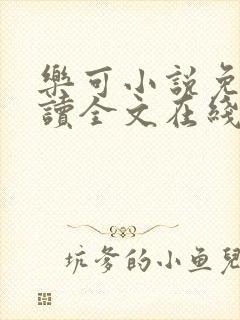 樂可小說免
讀全文在綫
坑爹的小鱼兒